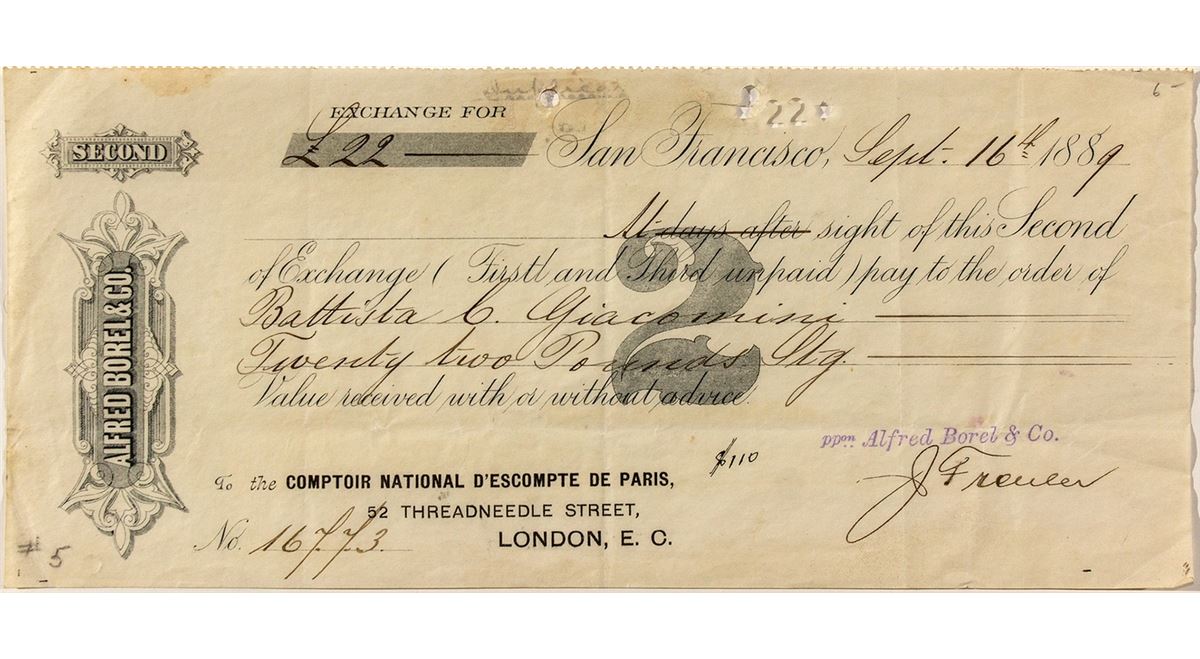 6-
EXCHANGE FOR
£22
220
SECOND
San Francisco, Sept. 16th 1889
At days after sight of this Second
of Exchange (First and Third unpaid) pay to the order of
Battista C. Giacomini
Twenty two Pounds Stg.
Value received with or without advice.
2
ALFRED BOREL & CO.
$110
ppon Alfred Borel & Co.
To the COMPTOIR NATIONAL D'ESCOMPTE DE PARIS,
52 THREADNEEDLE STREET,
No. 16773
LONDON, E. C.
#5